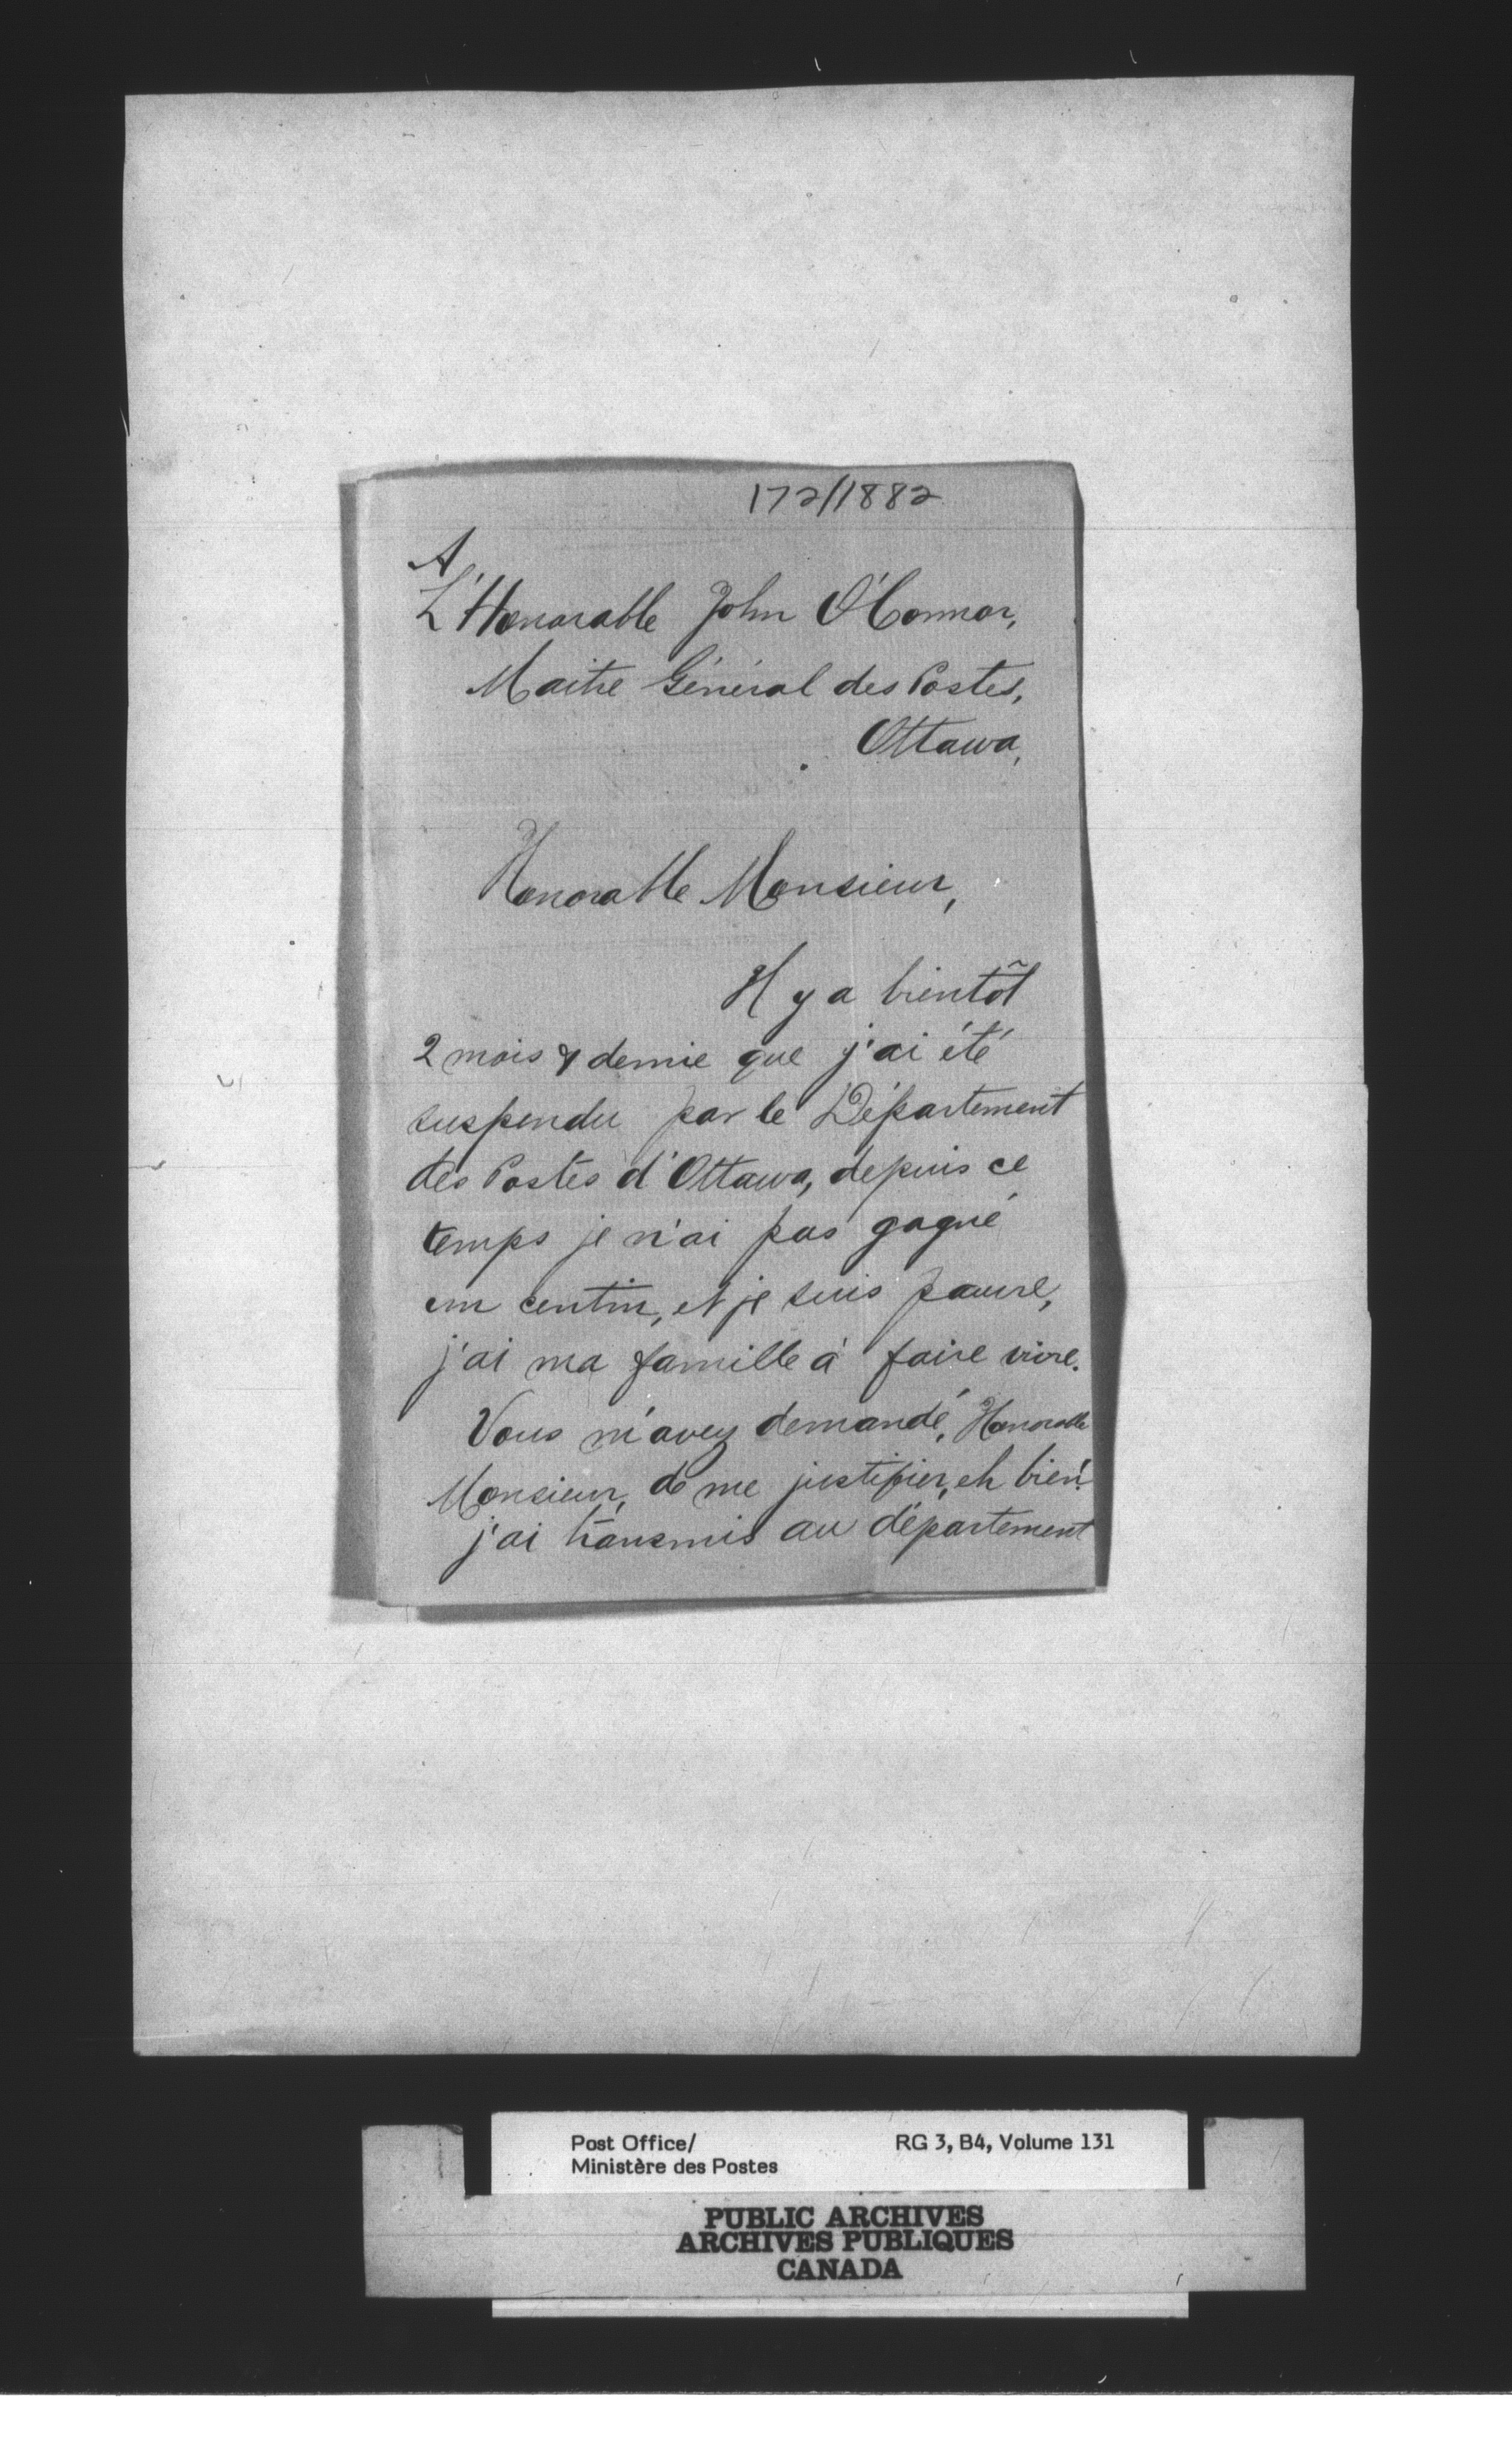 172/1882
A
L'Honorable John O'Connor,
Maitre Général des Postes,
Ottawa,
Honorable Monsieur,
Il y a bientôt
2 mois & demie que j'ai été
suspendu par le Département
des Postes d'Ottawa, depuis ce
temps je n'ai pas gagné
un centin, et je suis pauvre,
j'ai ma famille à faire vivre.
Vous m'avez demandé, Honorable
Monsieur, de me justifier, eh bien!
j'ai transmis au département
Post Office/
Ministère des Postes
RG 3, B4, Volume 131
PUBLIC ARCHIVES
ARCHIVES PUBLIQUES
CANADA